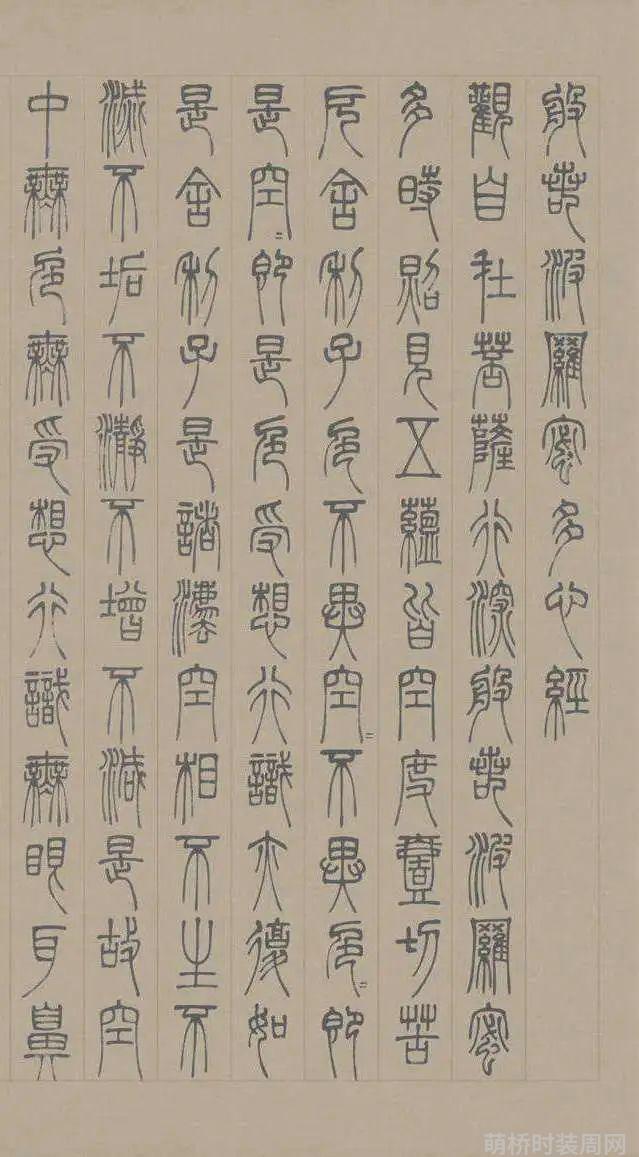 般若波羅蜜多心經
觀自在菩薩行深般若波羅蜜
多時照見五蘊皆空度壹切苦
厄舍利子色不異空〻不異色〻即
是空〻即是色受想行識亦復如
是舍利子是諸灋空相不生不
滅不垢不瀞不增不減是故空
中無色無受想行識無眼耳鼻
萌桥时装周网